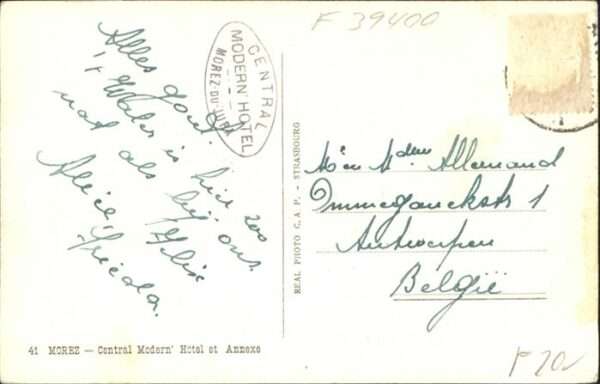 F 39400
Alles goed.
't Water is hier zoo
nat als bij ons.
Felix
Alice, Frieda.
CENTRAL
MODERN' HOTEL
MOREZ-DU-JURA
REAL PHOTO C. A. P. - STRASBOURG
Mr en Mdme Allemand
Ommeganckstr 1
Antwerpen
België
41 MOREZ — Central Modern' Hôtel et Annexe
F 20